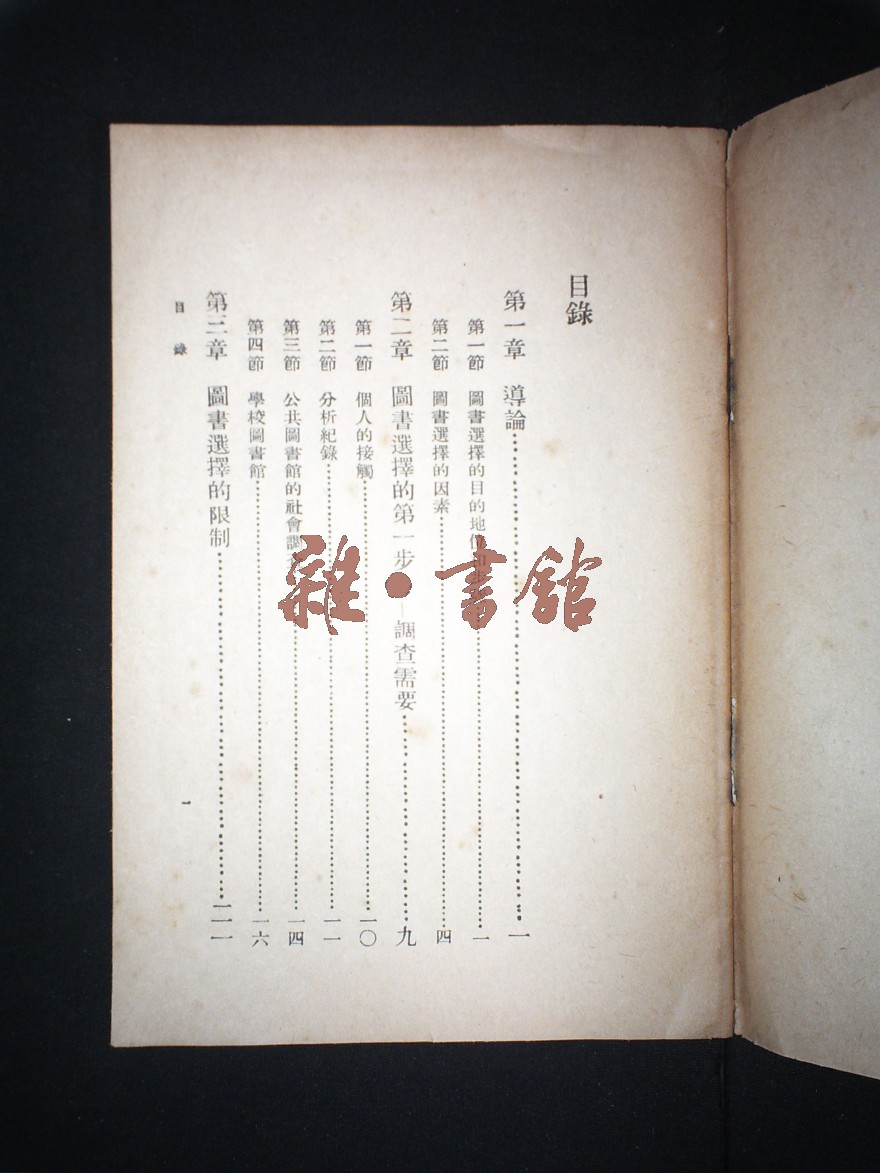 目錄
第一章 導論……一
第一節 圖書選擇的目的地位和……一
第二節 圖書選擇的因素……四
第二章 圖書選擇的第一步——調查需要……九
第一節 個人的接觸……一〇
第二節 分析紀錄……一一
第三節 公共圖書館的社會調查……一四
第四節 學校圖書館……一六
第三章 圖書選擇的限制……二一
目錄
一
雜•書館